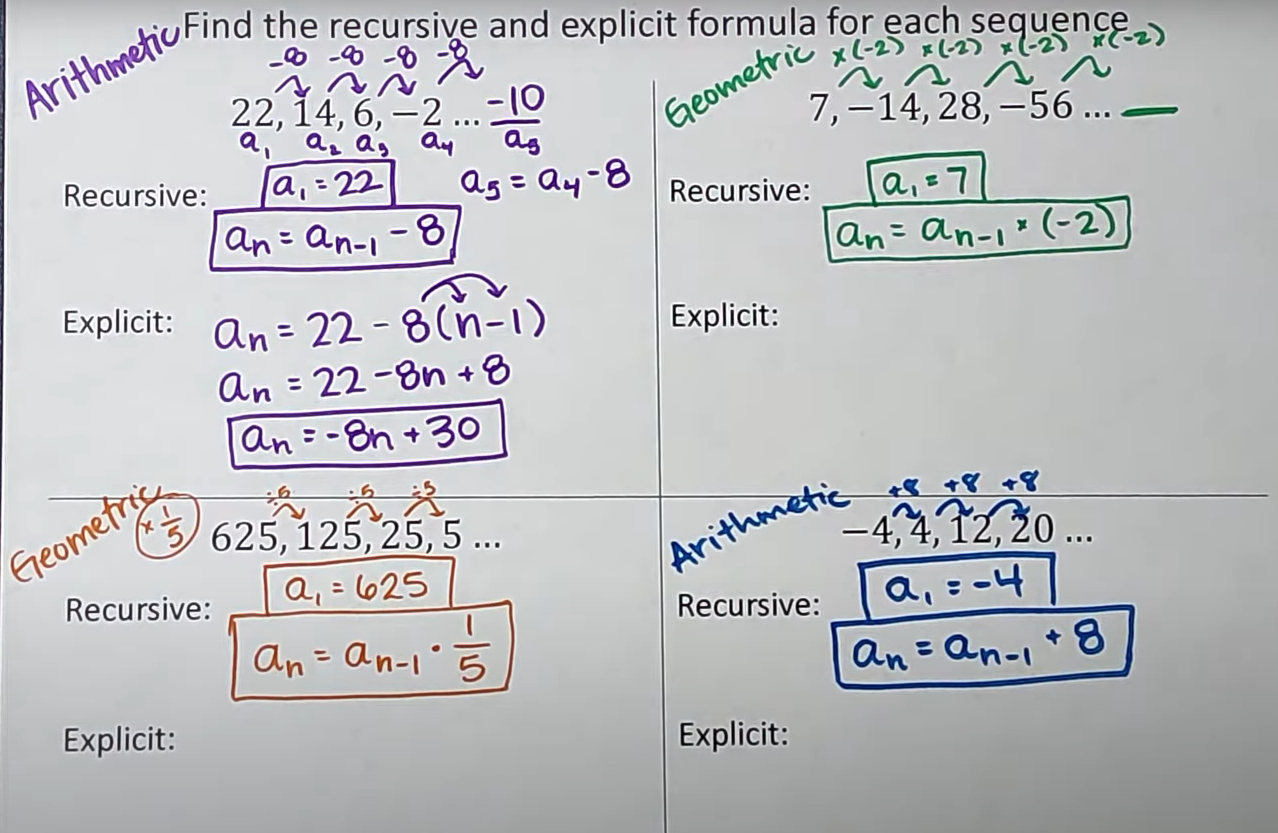 Find the recursive and explicit formula for each sequence
Arithmetic
-8 -8 -8 -8
22, 14, 6, −2 ... -10
a₁ a₂ a₃ a₄ a₅
Recursive: a₁ = 22 a₅ = a₄ - 8
aₙ = aₙ₋₁ - 8
Explicit: aₙ = 22 - 8(n-1)
aₙ = 22 - 8n + 8
aₙ = -8n + 30
Geometric
×(-2) ×(-2) ×(-2) ×(-2)
7, −14, 28, −56 ...
Recursive: a₁ = 7
aₙ = aₙ₋₁ × (-2)
Explicit:
Geometric
× 1/5
÷5 ÷5 ÷5
625, 125, 25, 5 ...
Recursive: a₁ = 625
aₙ = aₙ₋₁ · 1/5
Explicit:
Arithmetic
+8 +8 +8
−4, 4, 12, 20 ...
Recursive: a₁ = -4
aₙ = aₙ₋₁ + 8
Explicit: